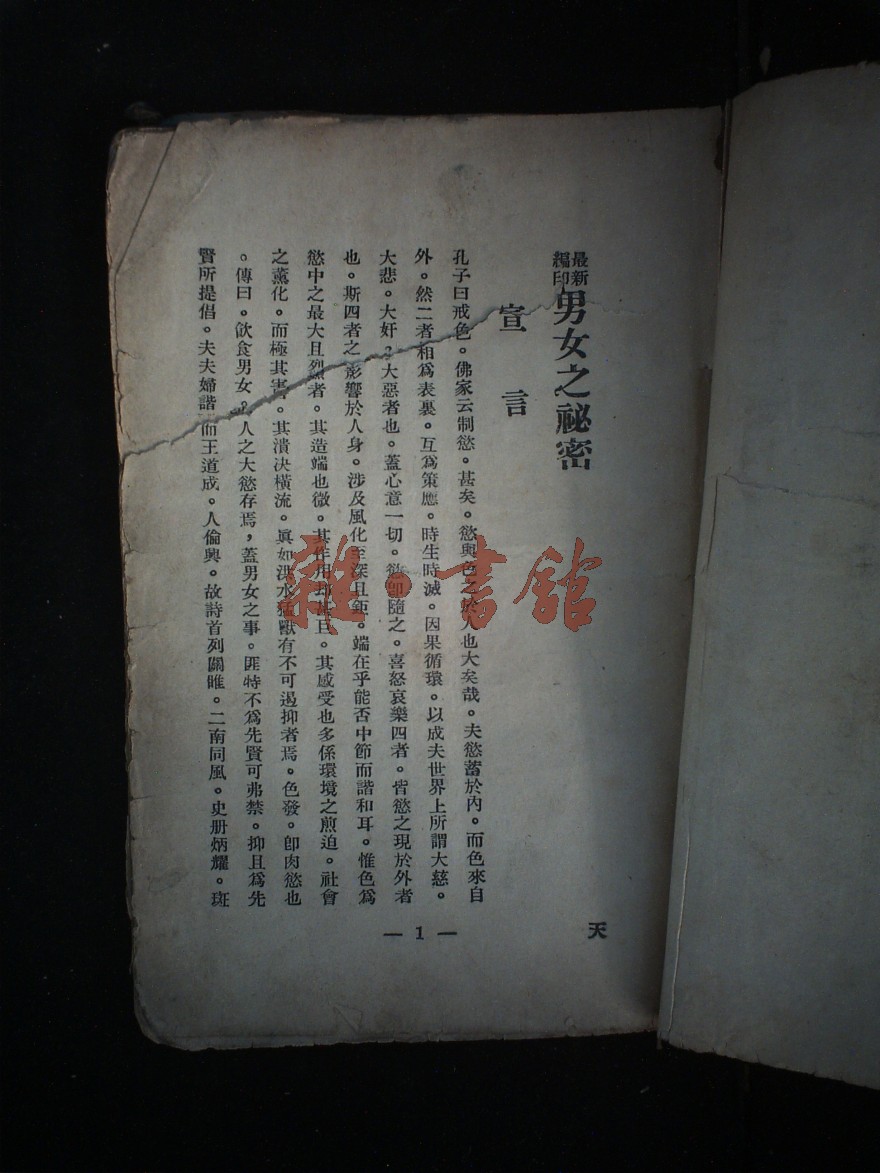 最新編印男女之祕密
宣言
孔子曰戒色。佛家云制慾。甚矣。慾與色之於人也大矣哉。夫慾蓄於內。而色來自
外。然二者相爲表裏。互爲策應。時生時滅。因果循環。以成夫世界上所謂大慈。
大悲。大奸。大惡者也。蓋心意一切。慾卽隨之。喜怒哀樂四者。皆慾之現於外者
也。斯四者之影響於人身。涉及風化至深且鉅。端在乎能否中節而諧和耳。惟色爲
慾中之最大且烈者。其造端也微。其作用却甚巨。其感受也多係環境之煎迫。社會
之薰化。而極其害。其潰決橫流。眞如洪水猛獸有不可遏抑者焉。色發。卽肉慾也
。傳曰。飲食男女。人之大慾存焉，蓋男女之事。匪特不爲先賢可弗禁。抑且爲先
賢所提倡。夫夫婦諧而王道成。人倫興。故詩首列關睢。二南同風。史册炳耀。斑
— 1 —
天
雜·書館